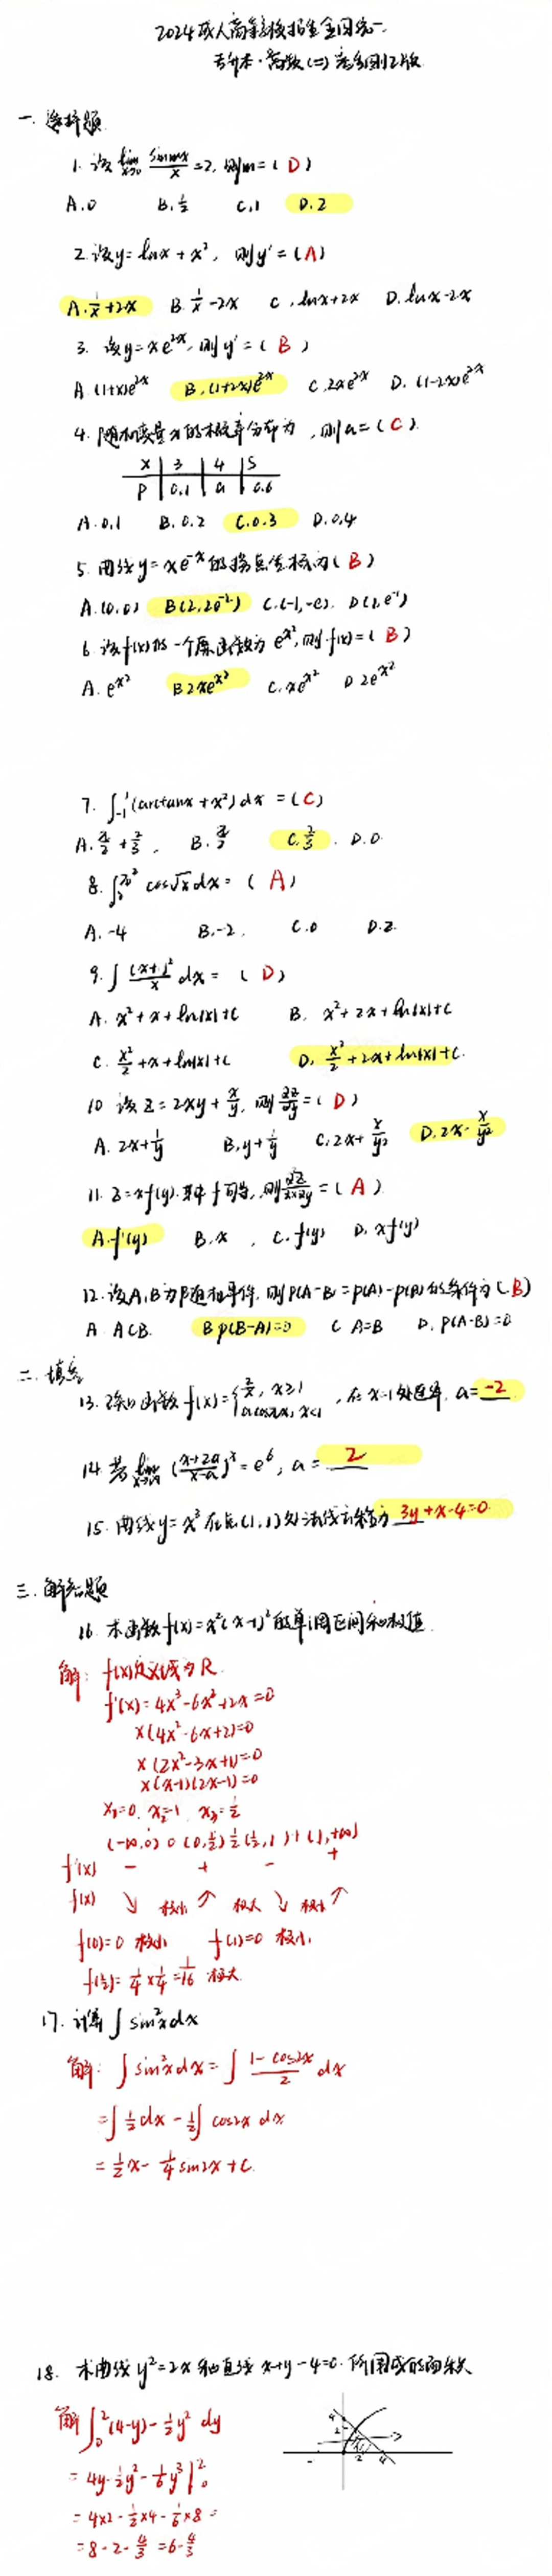 2024成人高等学校招生全国统一
专升本·高数(二)考多刚2版
一. 选择题
1. 设 lim x→0 sinmx/x =2, 则m=( D )
A.0 B.1/2 C.1 D.2
2. 设y=lnx+x², 则y'=(A)
A.1/x+2x B.1/x-2x C.lnx+2x D.lnx-2x
3. 设y=xe^2x, 则y'=( B )
A.(1+x)e^2x B.(1+2x)e^2x C.2xe^2x D.(1-2x)e^2x
4. 随机变量X的概率分布为 , 则a=( C )
X 3 4 5
P 0.1 a 0.6
A.0.1 B.0.2 C.0.3 D.0.4
5. 曲线y=xe^-x的拐点坐标为( B )
A.(0,0) B(2,2e^-2) C.(-1,-e). D(1,e^-1)
6. 设f(x)的一个原函数为e^x², 则f(x)=( B )
A.e^x² B.2xe^x² C.xe^x² D 2e^x²
7. ∫_-1^1(arctanx+x²)dx =( C )
A.π/2+2/3, B.π/2 C.2/3. D.0
8. cos√x dx=( A )
A.-4 B.-2. C.0 D.2
9. ∫(x+1)²/x dx= ( D )
A. x²+x+ln|x|+C B. x²+2x+ln|x|+C
C. x²/2+x+ln|x|+C D. x²/2+2x+ln|x|+C.
10 设z=2xy+x/y, 则∂z/∂y=( D )
A. 2x+1/y B.y+1/y C.2x+x/y² D.2x-x/y²
11. z=xf(y).其中f可导, 则∂²z/∂x∂y=( A )
A.f'(y) B.x , C.f(y) D.xf'(y)
12.设A,B为随机事件, 则P(A-B)=P(A)-P(B)的条件为( B)
A A⊂B. B P(B-A)=0 C A=B D. P(A-B)=0
二. 填空
13. 函数f(x)={2/x, x≥1 acosπx, x<1 , 在x=1处连续, a= -2
14. 若lim x→∞ (x+2a/x-a)^x=e^6, a= 2
15. 曲线y=x³在点(1,1)处法线方程为 3y+x-4=0
三. 解答题
16. 求函数f(x)=x²(x-1)²的单调区间和极值
解: f(x)定义域为R
f'(x)=4x³-6x²+2x=0
x(4x²-6x+2)=0
x(2x²-3x+1)=0
x(x-1)(2x-1)=0
x₁=0. x₂=1 x₃=1/2
(-∞,0) 0 (0,1/2) 1/2 (1/2,1) 1 (1,+∞)
f'(x) - + - +
f(x) ↘ 极小 ↗ 极大 ↘ 极小 ↗
f(0)=0 极小 f(1)=0 极小.
f(1/2)=1/4×1/4=1/16 极大
17. 计算∫sin²xdx
解: ∫sin²xdx=∫1-cos2x/2 dx
=∫1/2dx-1/2∫cos2x dx
=1/2x-1/4sin2x+C.
18. 求曲线y²=2x和直线x+y-4=0.所围成的面积
解∫_0^2(4-y)-1/2y² dy
=4y-1/2y²-1/6y³|_0^2
=4×2-1/2×4-1/6×8=
=8-2-4/3=6-4/3